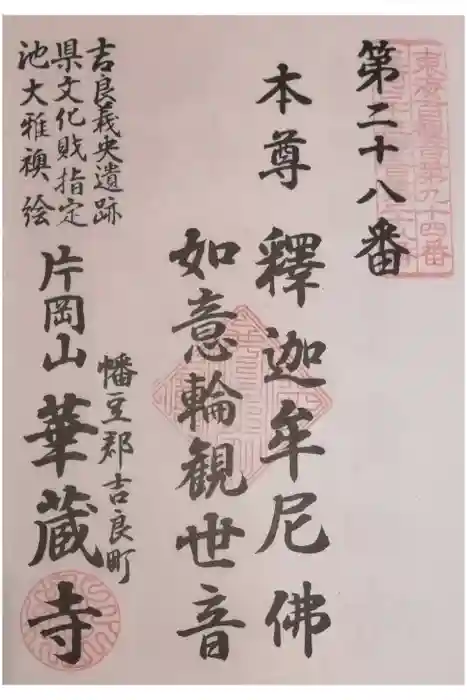 東海百観音第九十四番
第二十八番
本尊 釋迦牟尼佛
如意輪観世音
吉良義央遺跡
県文化財指定
池大雅襖絵
幡豆郡吉良町
片岡山 華蔵寺